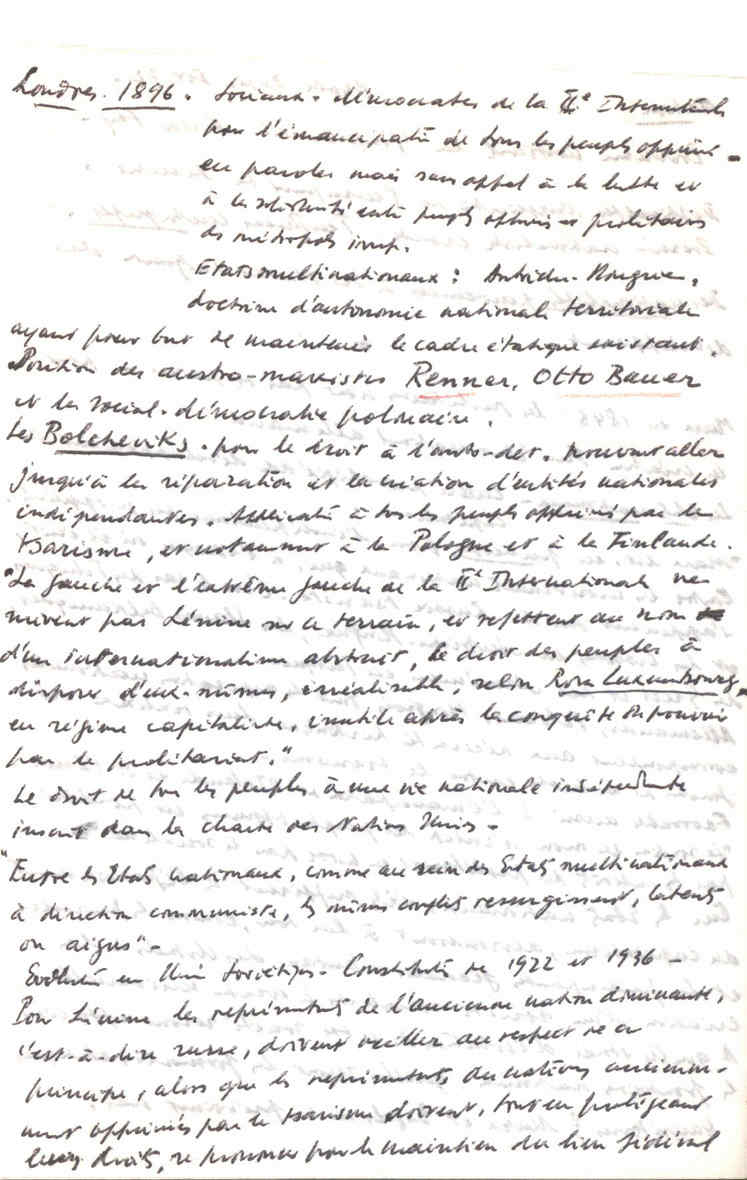 Londres. 1896. Sociaux-démocrates de la IIe Internationale
pour l'émancipatn de tous les peuples opprimés
en paroles mais sans appel à la lutte et
à la solidarité entre peuples opprimés et prolétaires
des métropoles
Etats multinationaux : Autriche-Hongrie,
doctrine d'autonomie nationale territoriale
ayant pour but de maintenir le cadre étatique existant.
Position des austro-marxistes Renner, Otto Bauer
et la social-démocratie polonaise.
Les Bolcheviks. pour le droit à l'auto-det. pouvant aller
jusqu'à la séparation et la création d'entités nationales
indépendantes. à tous les peuples opprimés par le
tsarisme, et notamment à la Pologne et à la Finlande.
"La gauche et l'extrême gauche de la IIe Internationale ne
suivent pas Lénine sur ce terrain, et rejettent au nom
d'un internationalisme abstrait, le droit des peuples à
disposer d'eux-mêmes, irréalisable, selon Rosa Luxembourg,
en régime capitaliste, inutile après la conquête du pouvoir
par le prolétariat."
Le droit de tous les peuples à une vie nationale indépendante
inscrit dans la charte des Nations Unies -
"Entre les Etats nationaux, comme au sein des Etats multinationaux
à direction communiste, les mêmes conflits resurgissent, latents
ou aigus" -
Evolution en Union Soviétique - Constitutn de 1922 et 1936 -
Pour Lénine les représentants de l'ancienne nation dominante,
c'est-à-dire russe, doivent veiller au respect de ce
principe, alors que les représentants des nations ancienne-
ment opprimées par le tsarisme doivent, tout en protégeant
leurs droits, se prononcer pour le maintien du lien fédéral